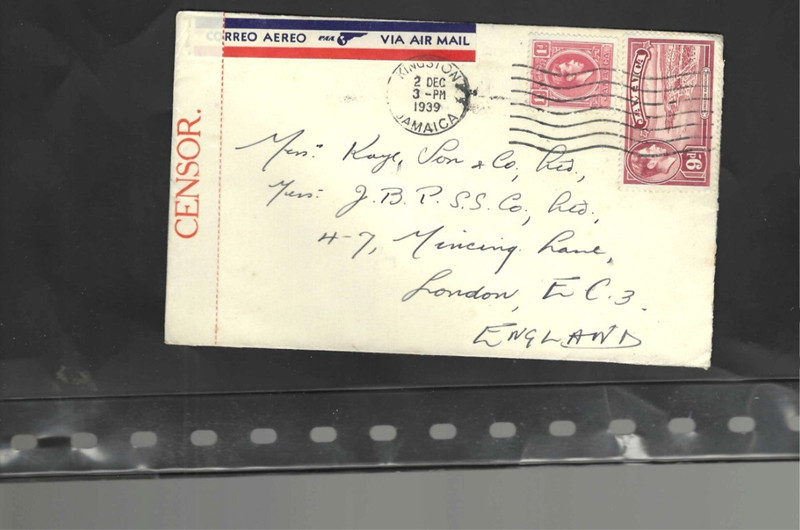 CORREO AEREO VIA AIR MAIL
CENSOR.
KINGSTON
2 DEC
3 - PM
1939
JAMAICA
1D
JAMAICA
9D
Messrs. Kaye, Son & Co, Ltd.,
Messrs. J. B. P. S. S. Co, Ltd.,
4-7, Mincing Lane,
London, E C. 3.
ENGLAND